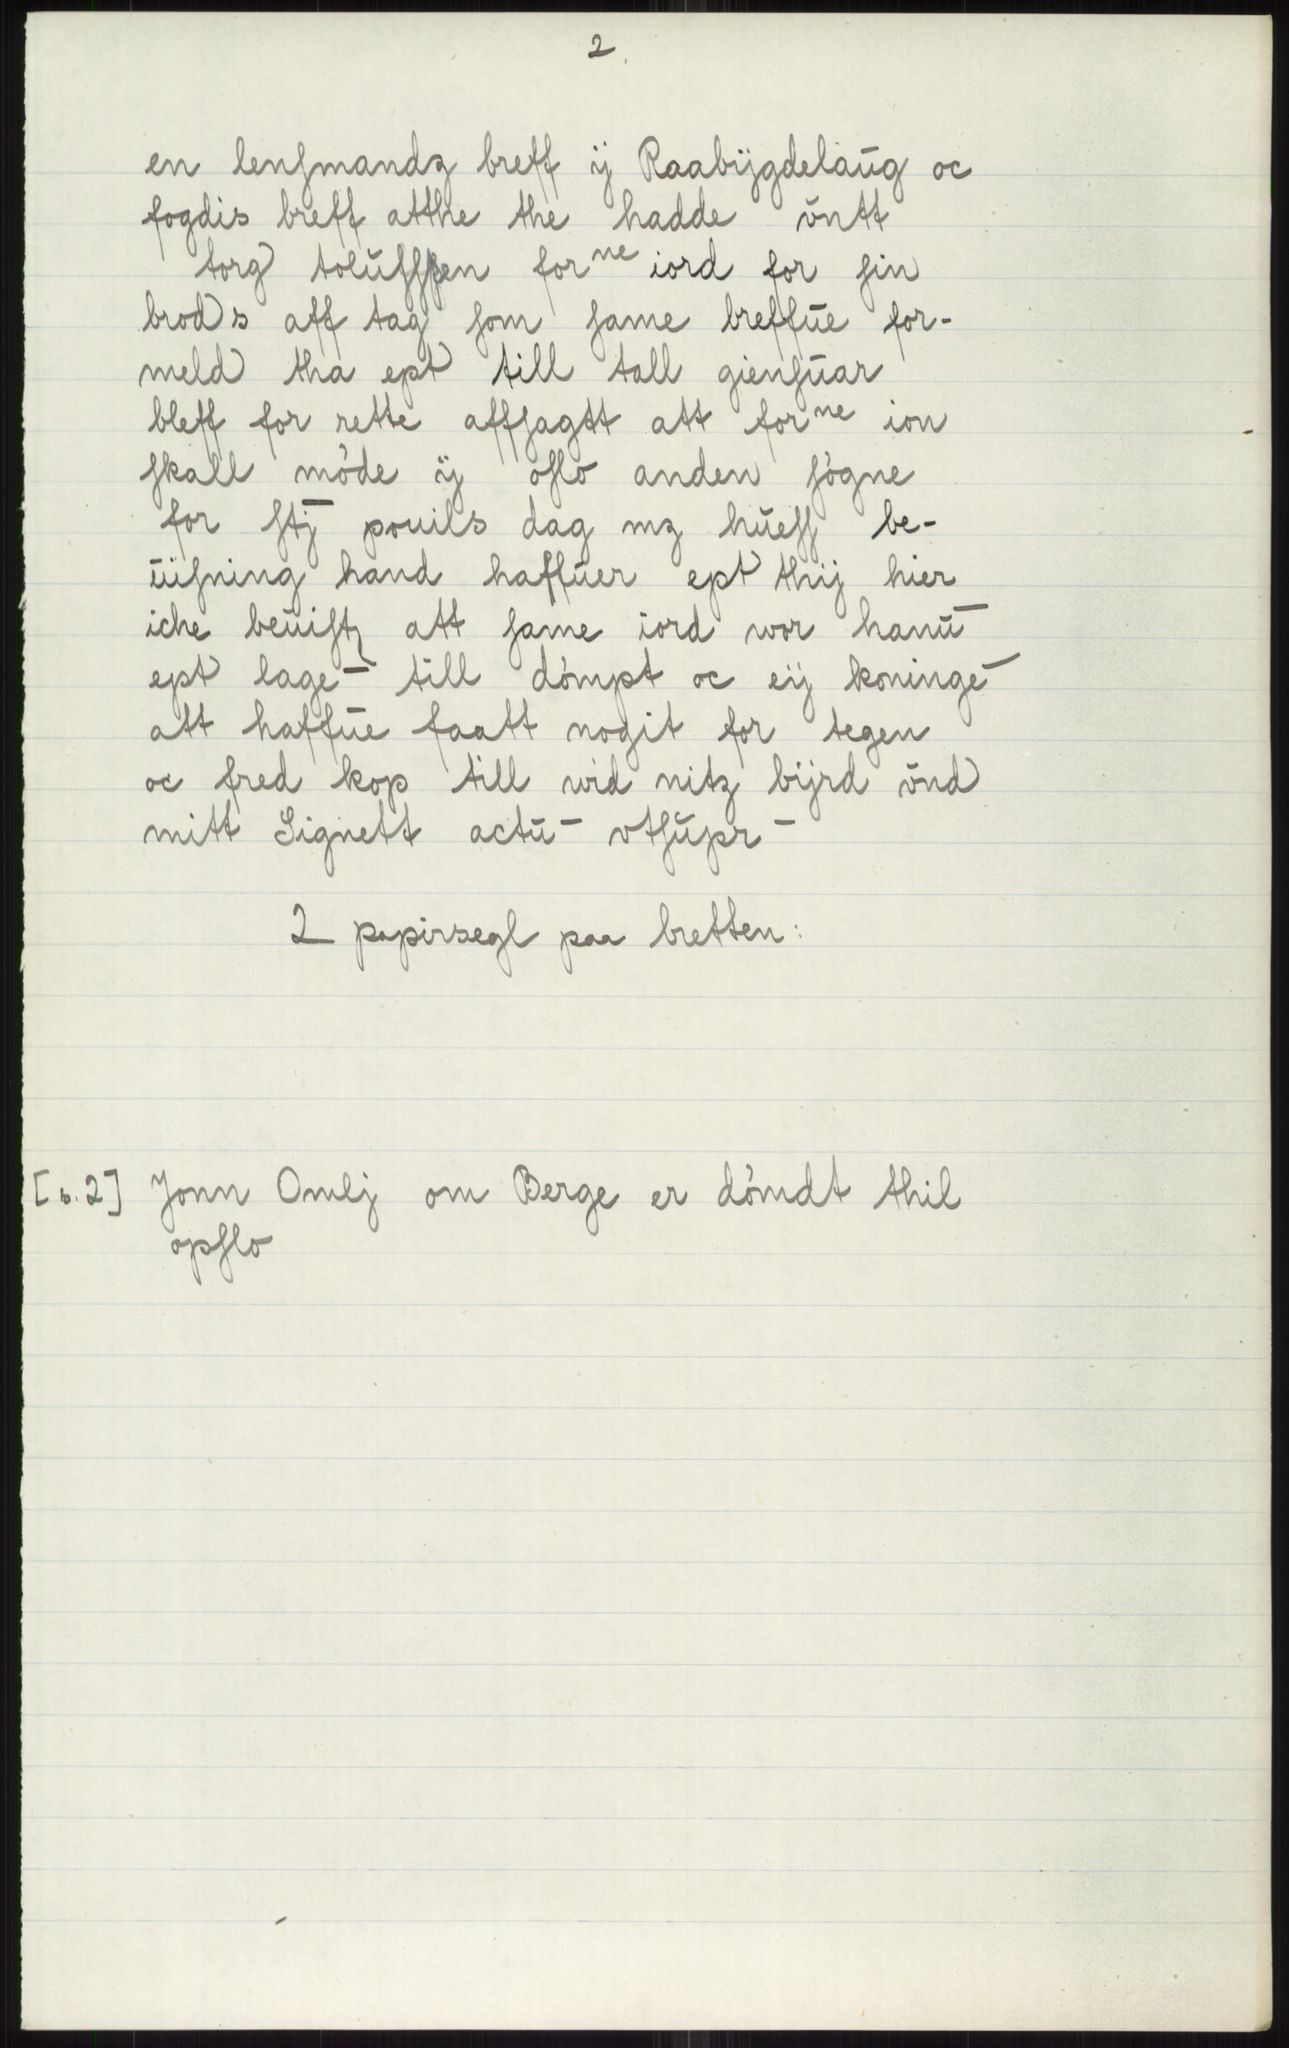 2
en lensmandz breff ÿ Raabÿgdelaūg oc
fogdis breff atthe the hadde ūntt
torg tolūffssen forne iord for sin
brods aff tag som same breffūe for-
meld tha ept till tall giensūar
bleff for rette affsagtt att forne ion
skall møde ÿ oslo anden søgne
for stj pouils dag mz hūess be-
ūisning hand haffūer ept thij hier
iche beūistz att same iord wor hanū
ept lage- till dømpt oc eÿ koninge-
att haffūe faatt nogit for tegen
oc fred kop till wid nitz bÿrd ūnd
mitt Signett actū- vtsūpr-
2 papirsegl paa bretten:
[s. 2] Jonn Omlj om Berge er dømdt thil
opslo